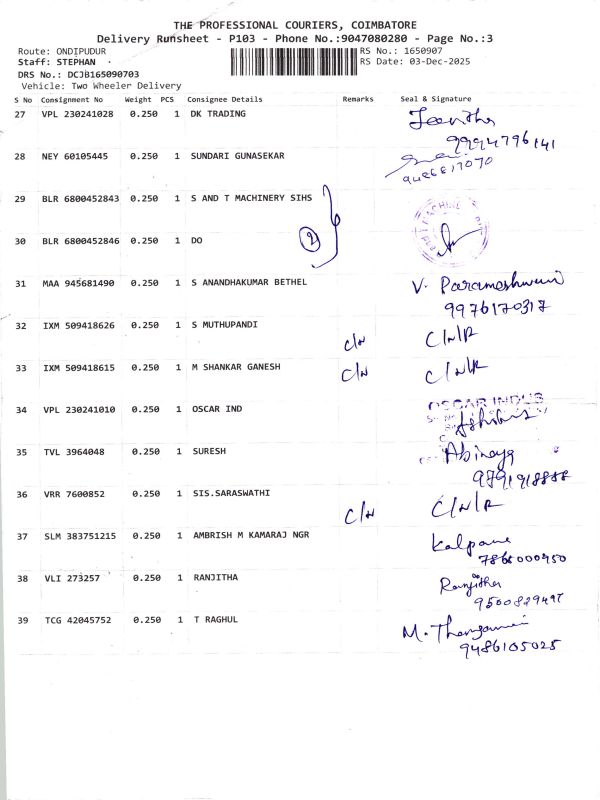 THE PROFESSIONAL COURIERS, COIMBATORE
Delivery Runsheet - P103 - Phone No.:9047080280 - Page No.:3
Route: ONDIPUDUR RS No.: 1650907
Staff: STEPHAN RS Date: 03-Dec-2025
DRS No.: DCJB165090703
Vehicle: Two Wheeler Delivery
S No Consignment No Weight PCS Consignee Details Remarks Seal & Signature
27 VPL 230241028 0.250 1 DK TRADING
9994796141
28 NEY 60105445 0.250 1 SUNDARI GUNASEKAR
29 BLR 6800452843 0.250 1 S AND T MACHINERY SIHS
30 BLR 6800452846 0.250 1 DO 2
31 MAA 945681490 0.250 1 S ANANDHAKUMAR BETHEL V. Parameshwari
9976170317
32 IXM 509418626 0.250 1 S MUTHUPANDI C/N C/N/R
33 IXM 509418615 0.250 1 M SHANKAR GANESH C/N C/N/R
34 VPL 230241010 0.250 1 OSCAR IND OSCAR INDUS
35 TVL 3964048 0.250 1 SURESH Abinaya
36 VRR 7600852 0.250 1 SIS.SARASWATHI C/N C/N/R
37 SLM 383751215 0.250 1 AMBRISH M KAMARAJ NGR Kalpana
38 VLI 273257 0.250 1 RANJITHA Ranjitha
39 TCG 42045752 0.250 1 T RAGHUL
9486105025